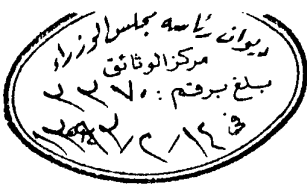 ديوان رئاسة مجلس الوزراء
مركز الوثائق
بلغ برقم : ٢٢٧٠
في ١٤ / ٢ /